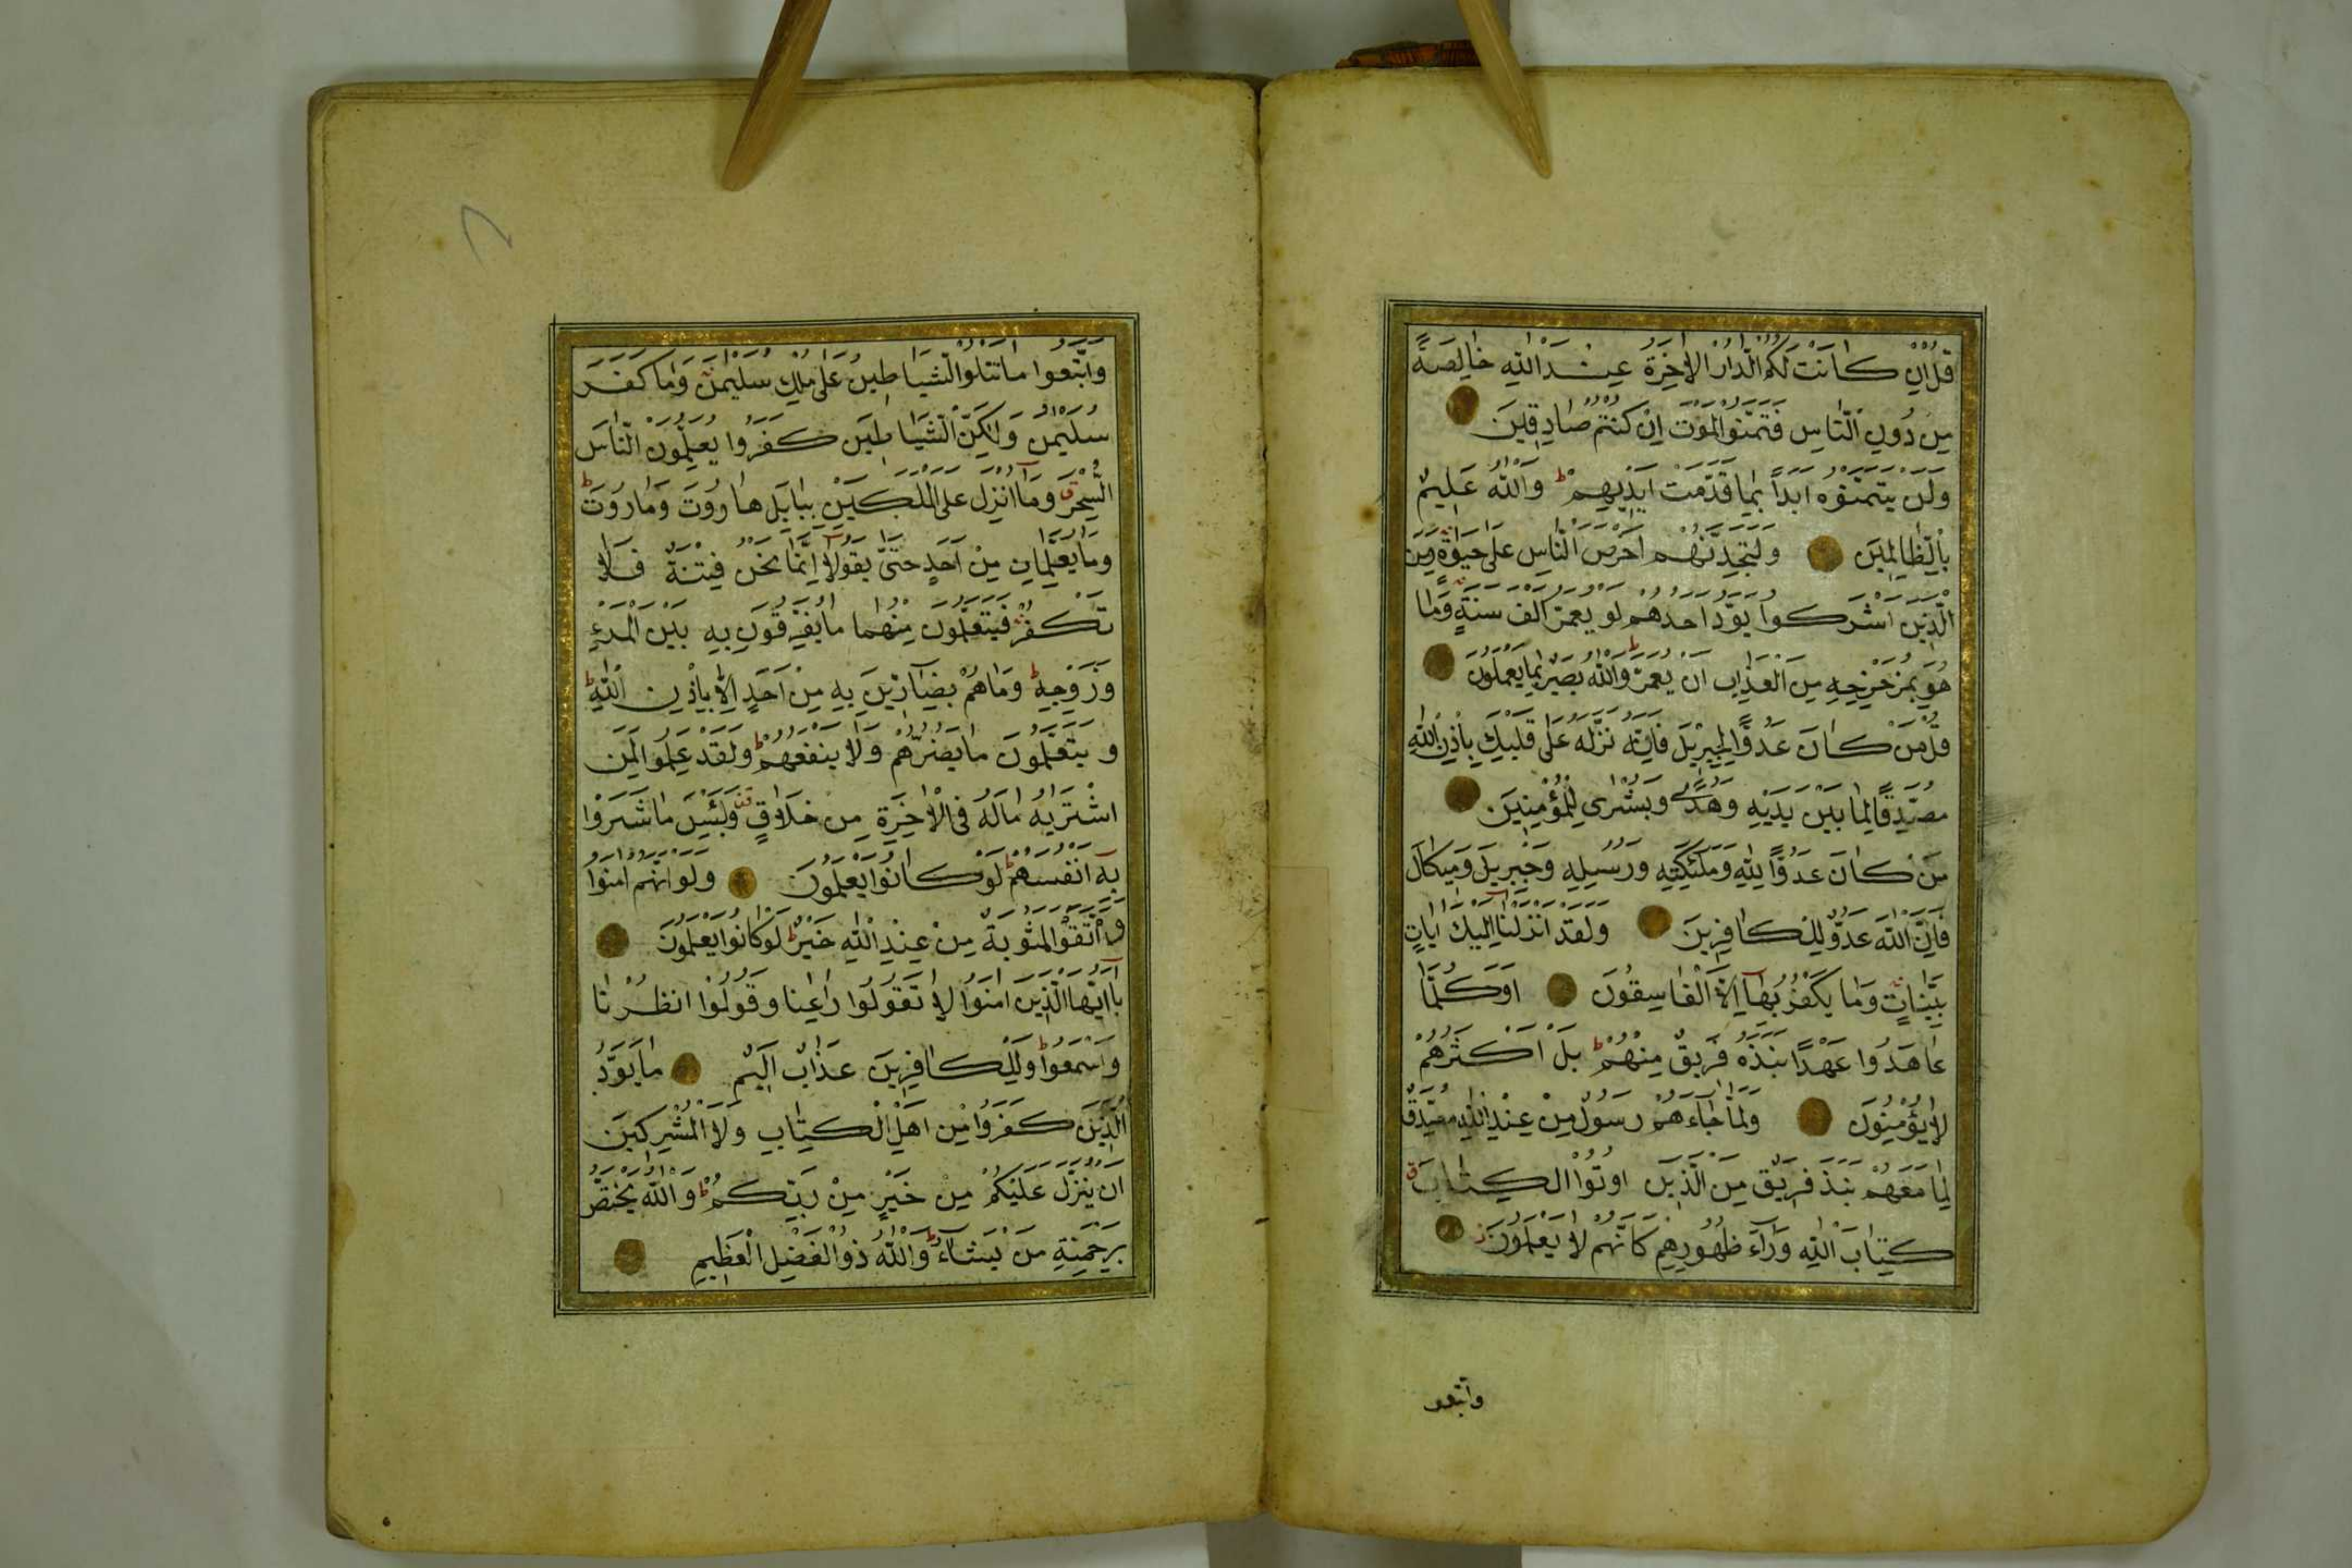 قُلْ اِنْ كَانَتْ لَكُمُ الدَّارُ الْاٰخِرَةُ عِنْدَ اللّٰهِ خَالِصَةً
مِنْ دُونِ النَّاسِ فَتَمَنَّوُا الْمَوْتَ اِنْ كُنْتُمْ صَادِقِينَ
وَلَنْ يَتَمَنَّوْهُ اَبَدًا بِمَا قَدَّمَتْ اَيْدِيهِمْ ط وَاللّٰهُ عَلِيمٌ
بِالظَّالِمِينَ وَلَتَجِدَنَّهُمْ اَحْرَصَ النَّاسِ عَلٰى حَيٰوةٍ وَمِنَ
الَّذِينَ اَشْرَكُوا يَوَدُّ اَحَدُهُمْ لَوْ يُعَمَّرُ اَلْفَ سَنَةٍ وَمَا
هُوَ بِمُزَحْزِحِهِ مِنَ الْعَذَابِ اَنْ يُعَمَّرَ ط وَاللّٰهُ بَصِيرٌ بِمَا يَعْمَلُونَ
قُلْ مَنْ كَانَ عَدُوًّا لِجِبْرِيلَ فَاِنَّهُ نَزَّلَهُ عَلٰى قَلْبِكَ بِاِذْنِ اللّٰهِ
مُصَدِّقًا لِمَا بَيْنَ يَدَيْهِ وَهُدًى وَبُشْرٰى لِلْمُؤْمِنِينَ
مَنْ كَانَ عَدُوًّا لِلّٰهِ وَمَلٰئِكَتِهِ وَرُسُلِهِ وَجِبْرِيلَ وَمِيكَالَ
فَاِنَّ اللّٰهَ عَدُوٌّ لِلْكَافِرِينَ وَلَقَدْ اَنْزَلْنَا اِلَيْكَ اٰيَاتٍ
بَيِّنَاتٍ وَمَا يَكْفُرُ بِهَا اِلَّا الْفَاسِقُونَ اَوَكُلَّمَا
عَاهَدُوا عَهْدًا نَبَذَهُ فَرِيقٌ مِنْهُمْ ط بَلْ اَكْثَرُهُمْ
لَا يُؤْمِنُونَ وَلَمَّا جَاءَهُمْ رَسُولٌ مِنْ عِنْدِ اللّٰهِ مُصَدِّقٌ
لِمَا مَعَهُمْ نَبَذَ فَرِيقٌ مِنَ الَّذِينَ اُوتُوا الْكِتَابَ ق
كِتَابَ اللّٰهِ وَرَاءَ ظُهُورِهِمْ كَاَنَّهُمْ لَا يَعْلَمُونَ ز
واتبعوا
وَاتَّبَعُوا مَا تَتْلُوا الشَّيَاطِينُ عَلٰى مُلْكِ سُلَيْمٰنَ وَمَا كَفَرَ
سُلَيْمٰنُ وَلٰكِنَّ الشَّيَاطِينَ كَفَرُوا يُعَلِّمُونَ النَّاسَ
السِّحْرَ ق وَمَا اُنْزِلَ عَلَى الْمَلَكَيْنِ بِبَابِلَ هَارُوتَ وَمَارُوتَ ط
وَمَا يُعَلِّمَانِ مِنْ اَحَدٍ حَتّٰى يَقُولَا اِنَّمَا نَحْنُ فِتْنَةٌ فَلَا
تَكْفُرْ فَيَتَعَلَّمُونَ مِنْهُمَا مَا يُفَرِّقُونَ بِهِ بَيْنَ الْمَرْءِ
وَزَوْجِهِ ط وَمَا هُمْ بِضَارِّينَ بِهِ مِنْ اَحَدٍ اِلَّا بِاِذْنِ اللّٰهِ ط
وَيَتَعَلَّمُونَ مَا يَضُرُّهُمْ وَلَا يَنْفَعُهُمْ ط وَلَقَدْ عَلِمُوا لَمَنِ
اشْتَرٰيهُ مَا لَهُ فِي الْاٰخِرَةِ مِنْ خَلَاقٍ وَلَبِئْسَ مَا شَرَوْا
بِهِ اَنْفُسَهُمْ ط لَوْ كَانُوا يَعْلَمُونَ وَلَوْ اَنَّهُمْ اٰمَنُوا
وَاتَّقَوْا لَمَثُوبَةٌ مِنْ عِنْدِ اللّٰهِ خَيْرٌ ط لَوْ كَانُوا يَعْلَمُونَ
يَا اَيُّهَا الَّذِينَ اٰمَنُوا لَا تَقُولُوا رَاعِنَا وَقُولُوا انْظُرْنَا
وَاسْمَعُوا ط وَلِلْكَافِرِينَ عَذَابٌ اَلِيمٌ مَا يَوَدُّ
الَّذِينَ كَفَرُوا مِنْ اَهْلِ الْكِتَابِ وَلَا الْمُشْرِكِينَ
اَنْ يُنَزَّلَ عَلَيْكُمْ مِنْ خَيْرٍ مِنْ رَبِّكُمْ ط وَاللّٰهُ يَخْتَصُّ
بِرَحْمَتِهِ مَنْ يَشَاءُ ط وَاللّٰهُ ذُو الْفَضْلِ الْعَظِيمِ